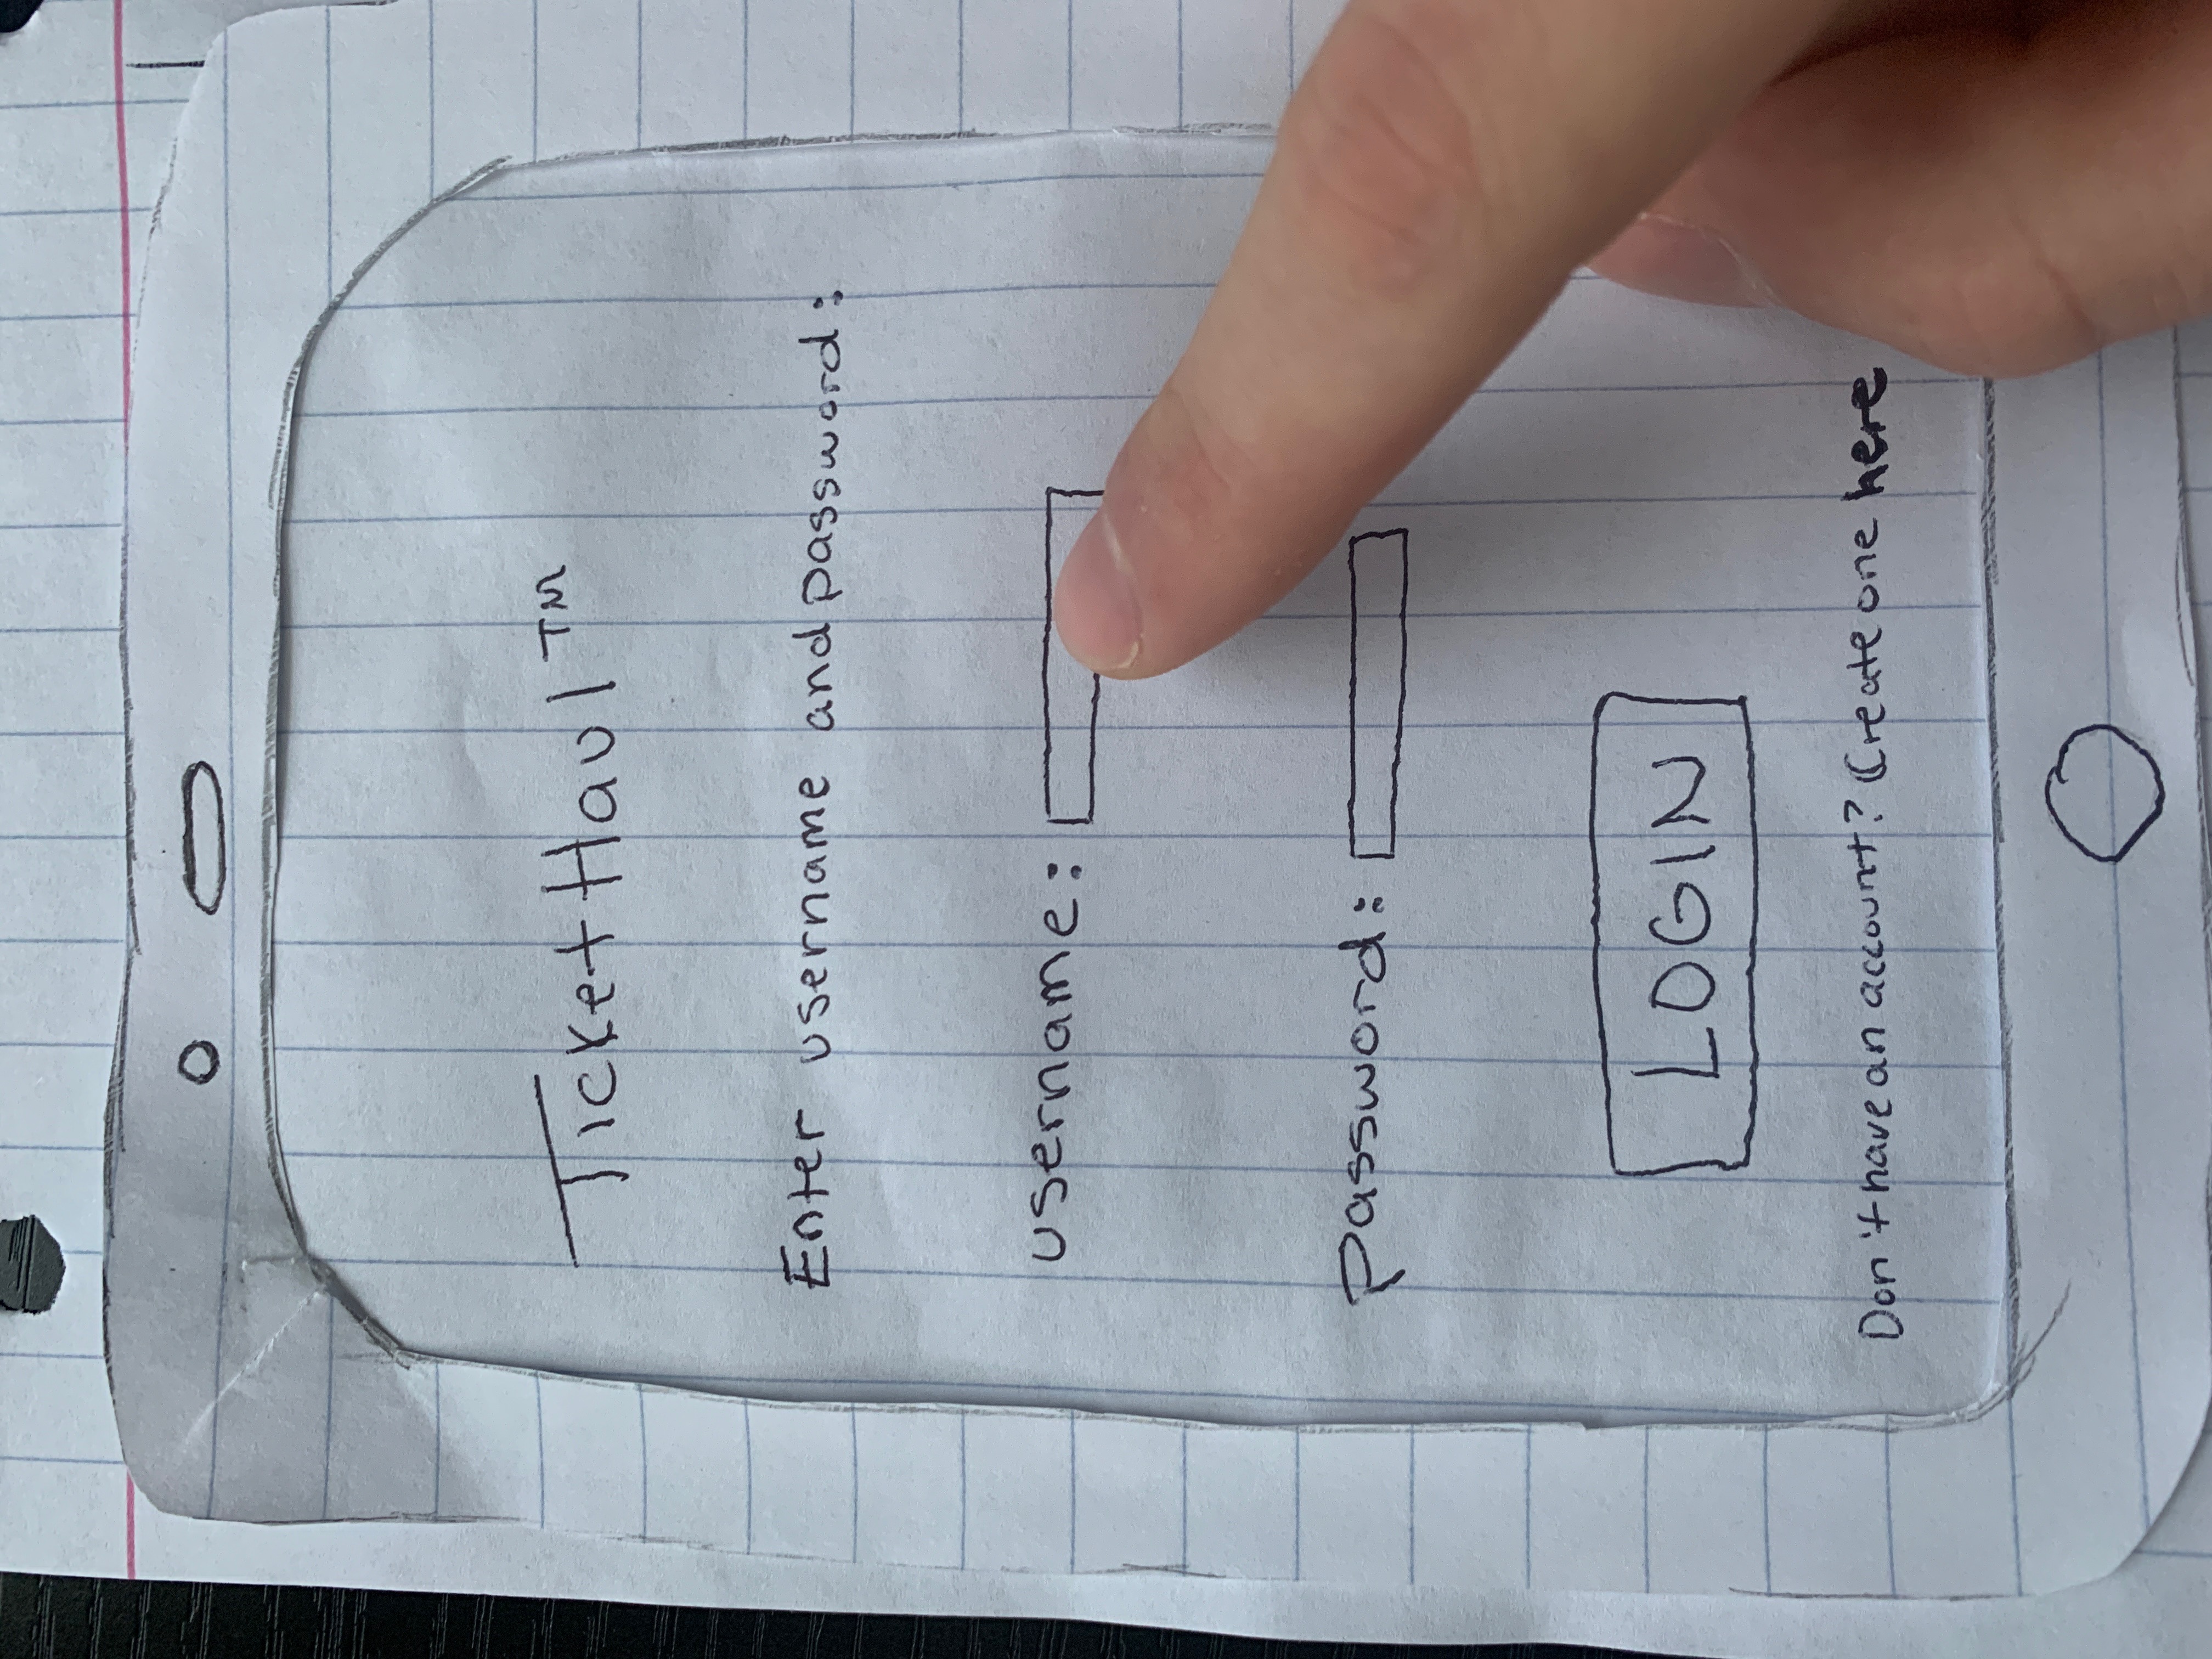 TicketHaul™
Enter username and password:
username:
password:
LOGIN
Don't have an account? Create one here